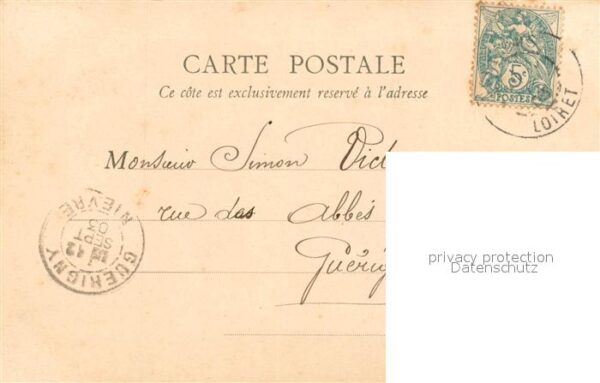 CARTE POSTALE
Ce côté est exclusivement reservé à l'adresse
5c
POSTES
LOIRET
Monsieur Simon Vict
rue des Abbés
Guérig
GUERIGNY
NIEVRE
12
SEPT
privacy protection
Datenschutz